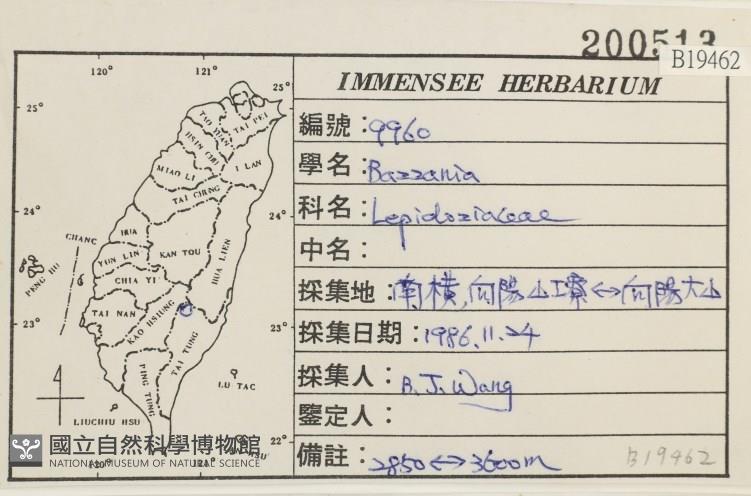 200513
B19462
IMMENSEE HERBARIUM
編號：9960
學名：Bazzania
科名：Lepidoziaceae
中名：
採集地：南橫,向陽山工寮↔向陽大山
採集日期：1986.11.24
採集人：B.J.Wang
鑒定人：
備註：2850↔3600m
B19462
120° 121°
25° 25°
TAO YUAN
TAI PEI
HSIN CHU
I LAN
MIAO LI
TAI CHUNG
24° 24°
HUA
CHANG
YUN LIN
KAN TOU
HUA LIEN
PENG HU
CHIA YI
TAI NAN
KAO HSIUNG
23° 23°
TAI TUNG
PING TUNG
LU TAC
LIUCHIU HSU
22°
120° 121°
HSU
國立自然科學博物館
NATIONAL MUSEUM OF NATURAL SCIENCE